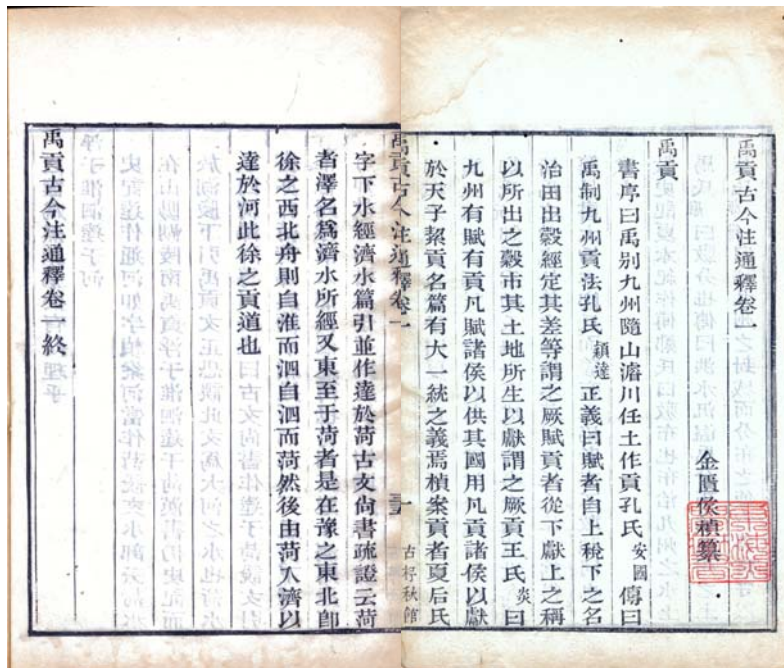 禹貢古今注通釋卷一
金匱侯楨纂
禹貢
書序曰禹别九州隨山濬川任土作貢孔氏安國傳曰
禹制九州貢法孔氏穎達正義曰賦者自上稅下之名
治田出穀經定其差等謂之厥賦貢者從下獻上之稱
以所出之穀市其土地所生以獻謂之厥貢王氏炎曰
九州有賦有貢凡賦諸侯以供其國用凡貢諸侯以獻
於天子挈貢名篇有大一統之義焉楨案貢者夏后氏
禹貢古今注通釋卷一
古杼秋館
字下水經濟水篇引並作達於菏古文尚書疏證云菏
者澤名爲濟水所經又東至于菏者是在豫之東北卽
徐之西北舟則自淮而泗自泗而菏然後由菏入濟以
達於河此徐之貢道也
禹貢古今注通釋卷一終